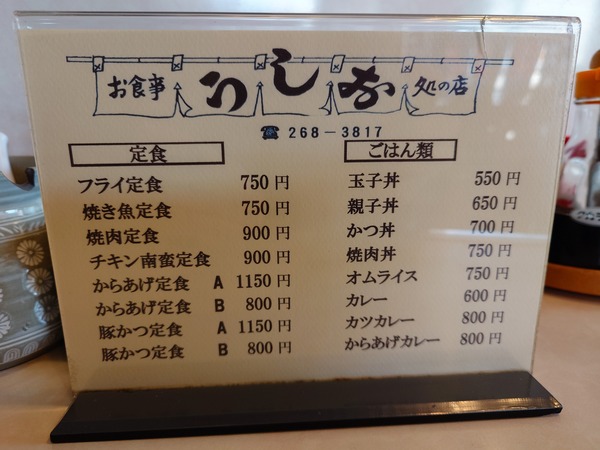 お食事 うしお 処の店
☎ 268－3817
定食
フライ定食 750円
焼き魚定食 750円
焼肉定食 900円
チキン南蛮定食 900円
からあげ定食 A 1150円
からあげ定食 B 800円
豚かつ定食 A 1150円
豚かつ定食 B 800円
ごはん類
玉子丼 550円
親子丼 650円
かつ丼 700円
焼肉丼 750円
オムライス 750円
カレー 600円
カツカレー 800円
からあげカレー 800円